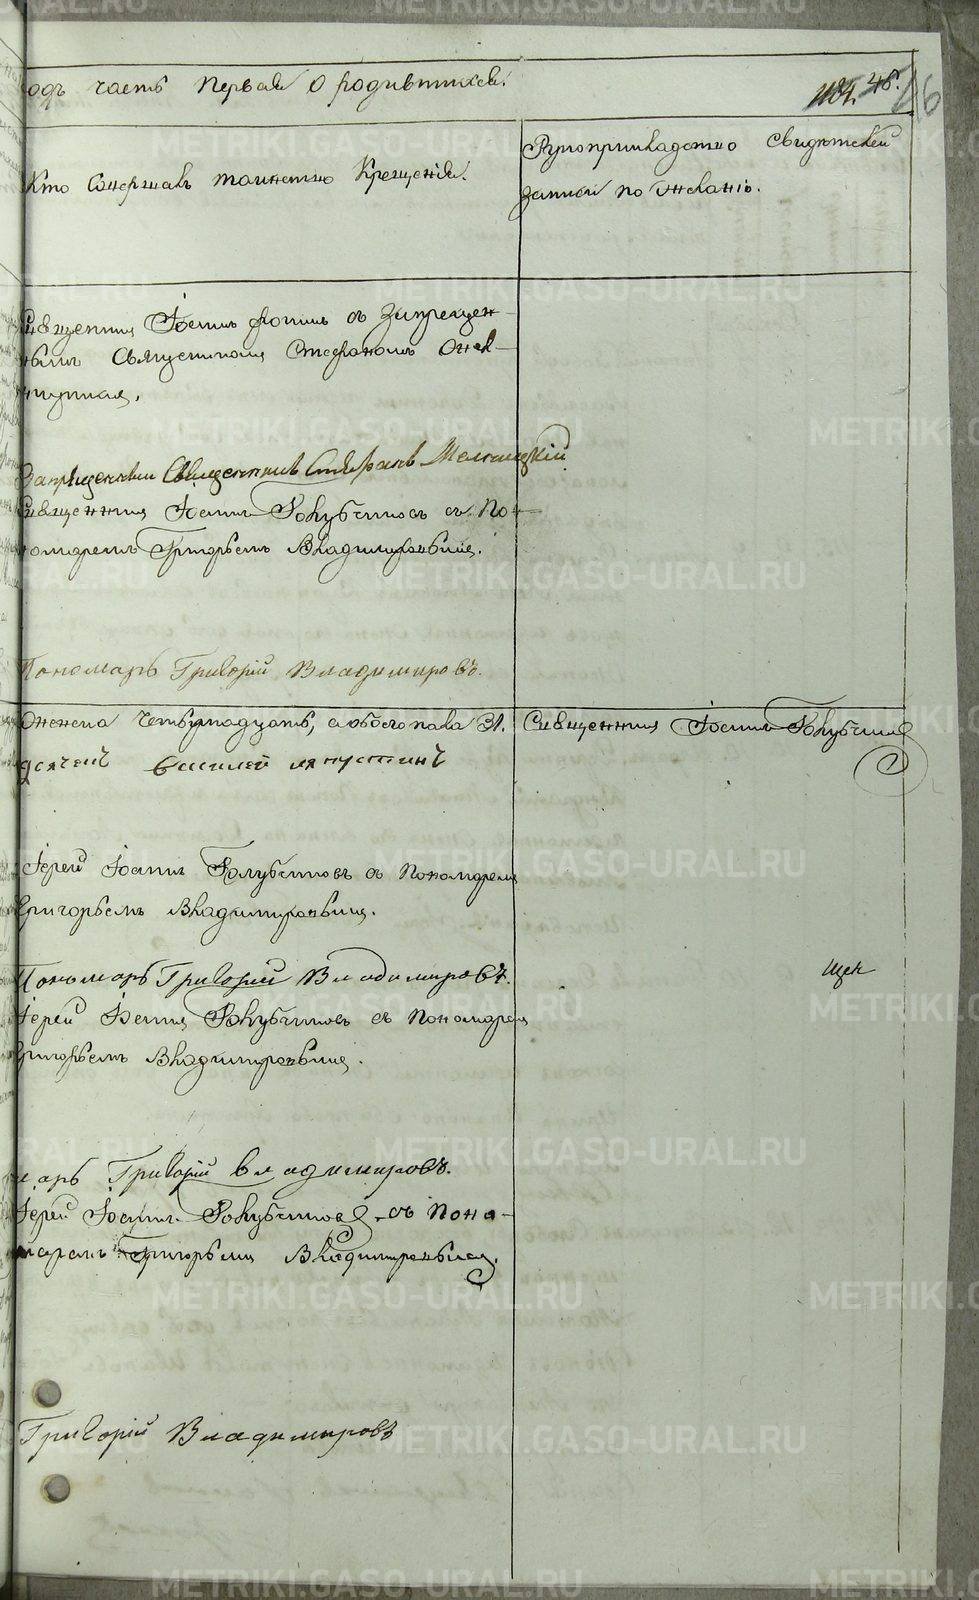 одъ часть Первая О родившихся.
46
Кто Совершалъ таинство Крещенія.
Рукоприкладство Свидѣтелей
записи по желанію.
Священникъ Іоаннъ съ Запрещен-
нымъ Священникомъ Стефаномъ
Запрещенный Священникъ Стефанъ
Священникъ Іоаннъ Голубчиковъ съ По-
номаремъ Григорьемъ Владимировымъ.
Пономарь Григорій Владимировъ.
четырнадцать, а обоего пола 31.
Священникъ Іоаннъ Голубчиковъ
Василей Лапустинъ
Іерей Іоаннъ Голубчиковъ съ Пономаремъ
Григорьемъ Владимировымъ.
Пономарь Григорій Владимировъ.
Іерей Іоаннъ Голубчиковъ съ Пономаремъ
Григорьемъ Владимировымъ.
марь Григорій Владимировъ.
Іерей Іоаннъ Голубчиковъ съ Поно-
маремъ Григорьемъ Владимировымъ.
Григорій Владимировъ
METRIKI.GASO-URAL.RU